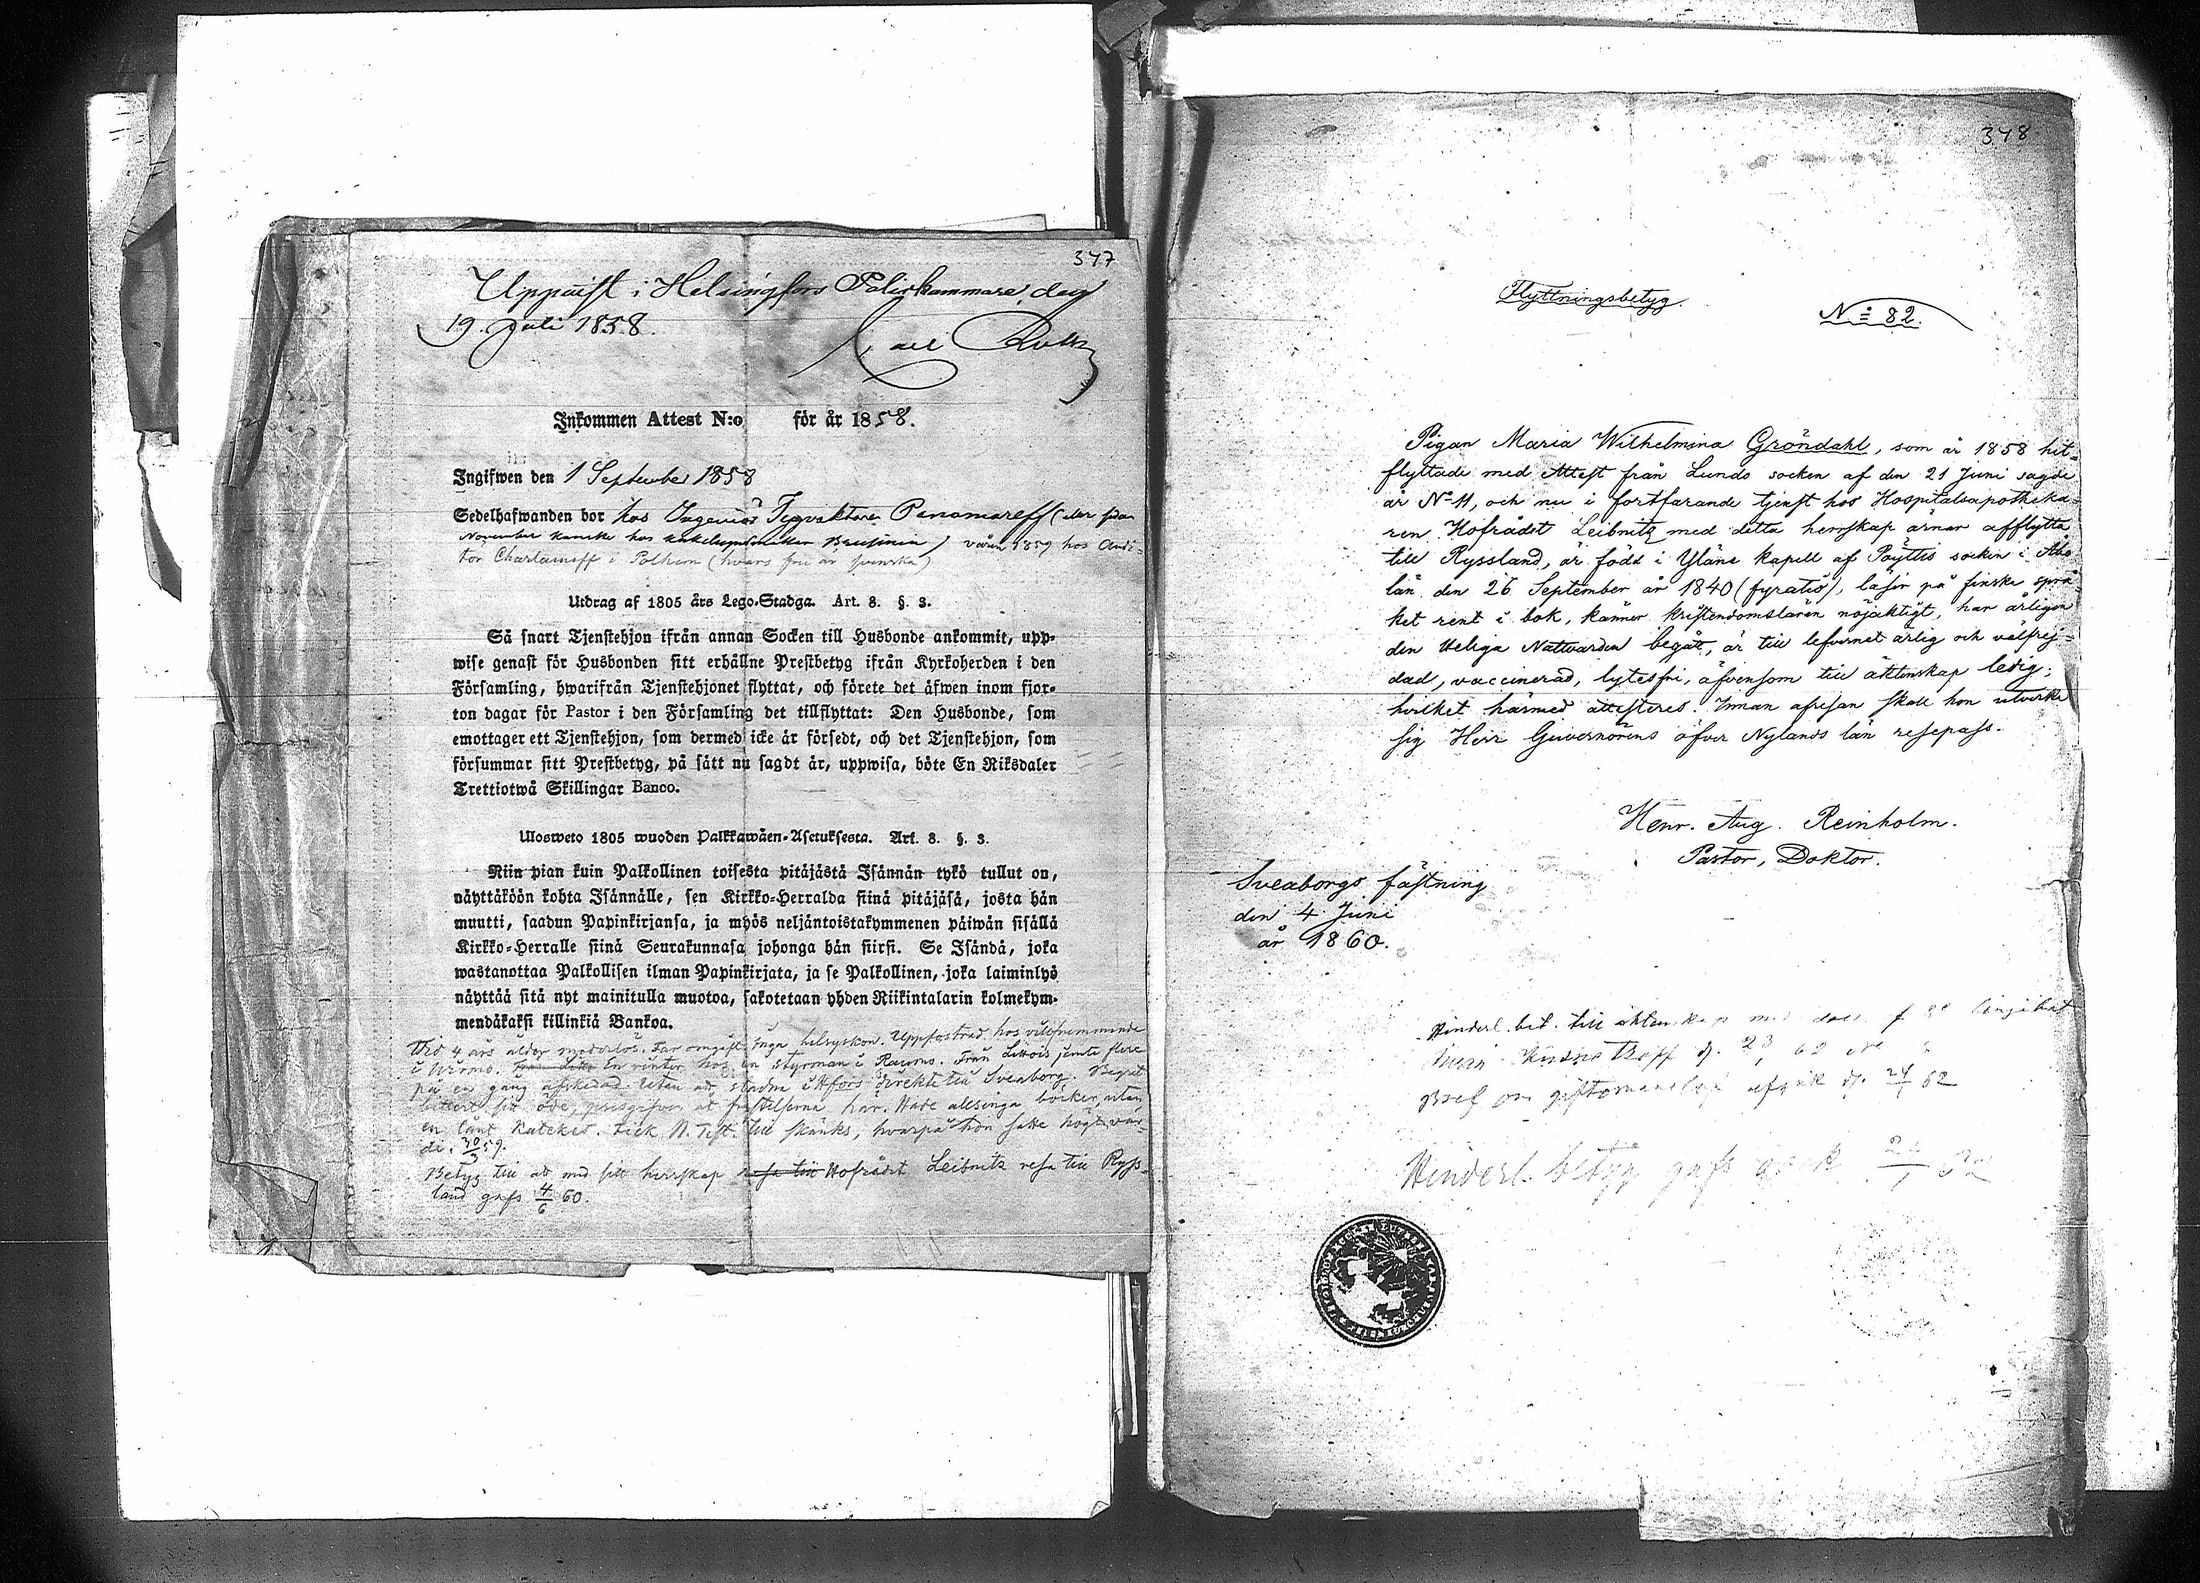 347
Uppvist i Helsingfors Poliskammare, den
19. Juli 1858.
Carl
Inkommen Attest N:o för år 1858.
Ingifwen den 1 September 1858
Sedelhafwanden bor hos Ingeniös Panomareff (der sedan
November kanske hos ) våren 1859 hos Audi-
tor Charlamoff i Polhem (hvars fru är svenska)
Utdrag af 1805 års Lego-Stadga. Art. 8. §. 3.
Så snart Tjenstehjon ifrån annan Socken till Husbonde ankommit, upp-
wise genast för Husbonden sitt erhållne Prestbetyg ifrån Kyrkoherden i den
Församling, hwarifrån Tjenstehjonet flyttat, och förete det äfwen inom fjor-
ton dagar för Pastor i den Församling det tillflyttat: Den Husbonde, som
emottager ett Tjenstehjon, som dermed icke är försedt, och det Tjenstehjon, som
försummar sitt Prestbetyg, på sätt nu sagdt är, uppwisa, böte En Riksdaler
Trettiotwå Skillingar Banco.
Ulosweto 1805 wuoden Palkkawäen-Asetuksesta. Art. 8. §. 3.
Niin pian kuin Palkollinen toisesta pitäjästä Isännän tykö tullut on,
näyttäköön kohta Isännälle, sen Kirkko-Herralda siinä pitäjäsä, josta hän
muutti, saadun Papinkirjansa, ja myös neljäntoistakymmenen päiwän sisällä
Kirkko-Herralle siinä Seurakunnasa johonga hän siirsi. Se Isändä, joka
wastanottaa Palkollisen ilman Papinkirjata, ja se Palkollinen, joka laiminlyö
näyttää sitä nyt mainitulla muotoa, sakotetaan yhden Riikintalarin kolmekym-
mendäkaksi killinkiä Bankoa.
Vid 4 års ålder moderlös. Far omgift. Inga helsyskon. Uppfostrad hos vildfremmande
i Wirmo. En vinter hos en styrman i Raumo. Från Littois jemte flere
på en gång afskedad. Utan att stadna i Hfors direkte till Sveaborg.
bittert sitt öde, prisgifven åt här. Hade allsinga böcker, utan
en lånt Kateches. Fick N. Test. till skänks, hvarpå hon satte högt vär-
de. 30/3 59.
Betyg till att med sitt herrskap resa till Hofrådet Leibnitz resa till Ryss-
land gafs 4/6 60.
348
Flyttningsbetyg.
No 82.
Pigan Maria Wilhelmina Gröndahl, som år 1858 hit-
flyttade med Attest från Lundo socken af den 21 Juni sagde
år No 11, och nu i fortfarande tjenst hos Hospitalsapotheka-
ren Hofrådet Leibnitz med detta herrskap ärnar afflytta
till Ryssland, är född i Yläne kapell af Pöyttis socken i Åbo
län den 26 September år 1840 (fyratio), läser på finska språ-
ket rent i bok, känner kristendomsläran nöjaktigt, har årligen
den Heliga Nattvarden begått, är till lefvernet ärlig och välfrej-
dad, vaccinerad, lytesfri, äfvensom till äktenskap ledig;
hvilket härmed attesteras. Innan afresan skall hon utverka
sig Herr Guvernörens öfver Nylands län resepass.
Henr. Aug. Reinholm.
Pastor, Doktor.
Sveaborgs fästning
den 4 Juni
år 1860.
Hinderl. bet. till äktenskap med
62
Bref om giftomanskap afgick d. 24/1 62
Hinderl. betyg gafs 24/1 62